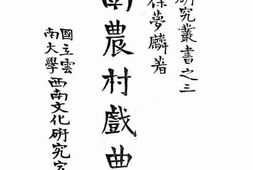 研究叢書之三
徐夢麟著
南農村戲曲
國立雲
南大學
西南文化研究室